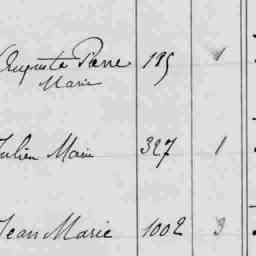 Auguste Pierre 195 1
Marie
Julien Marie 327 1
Jean Marie 1002 3